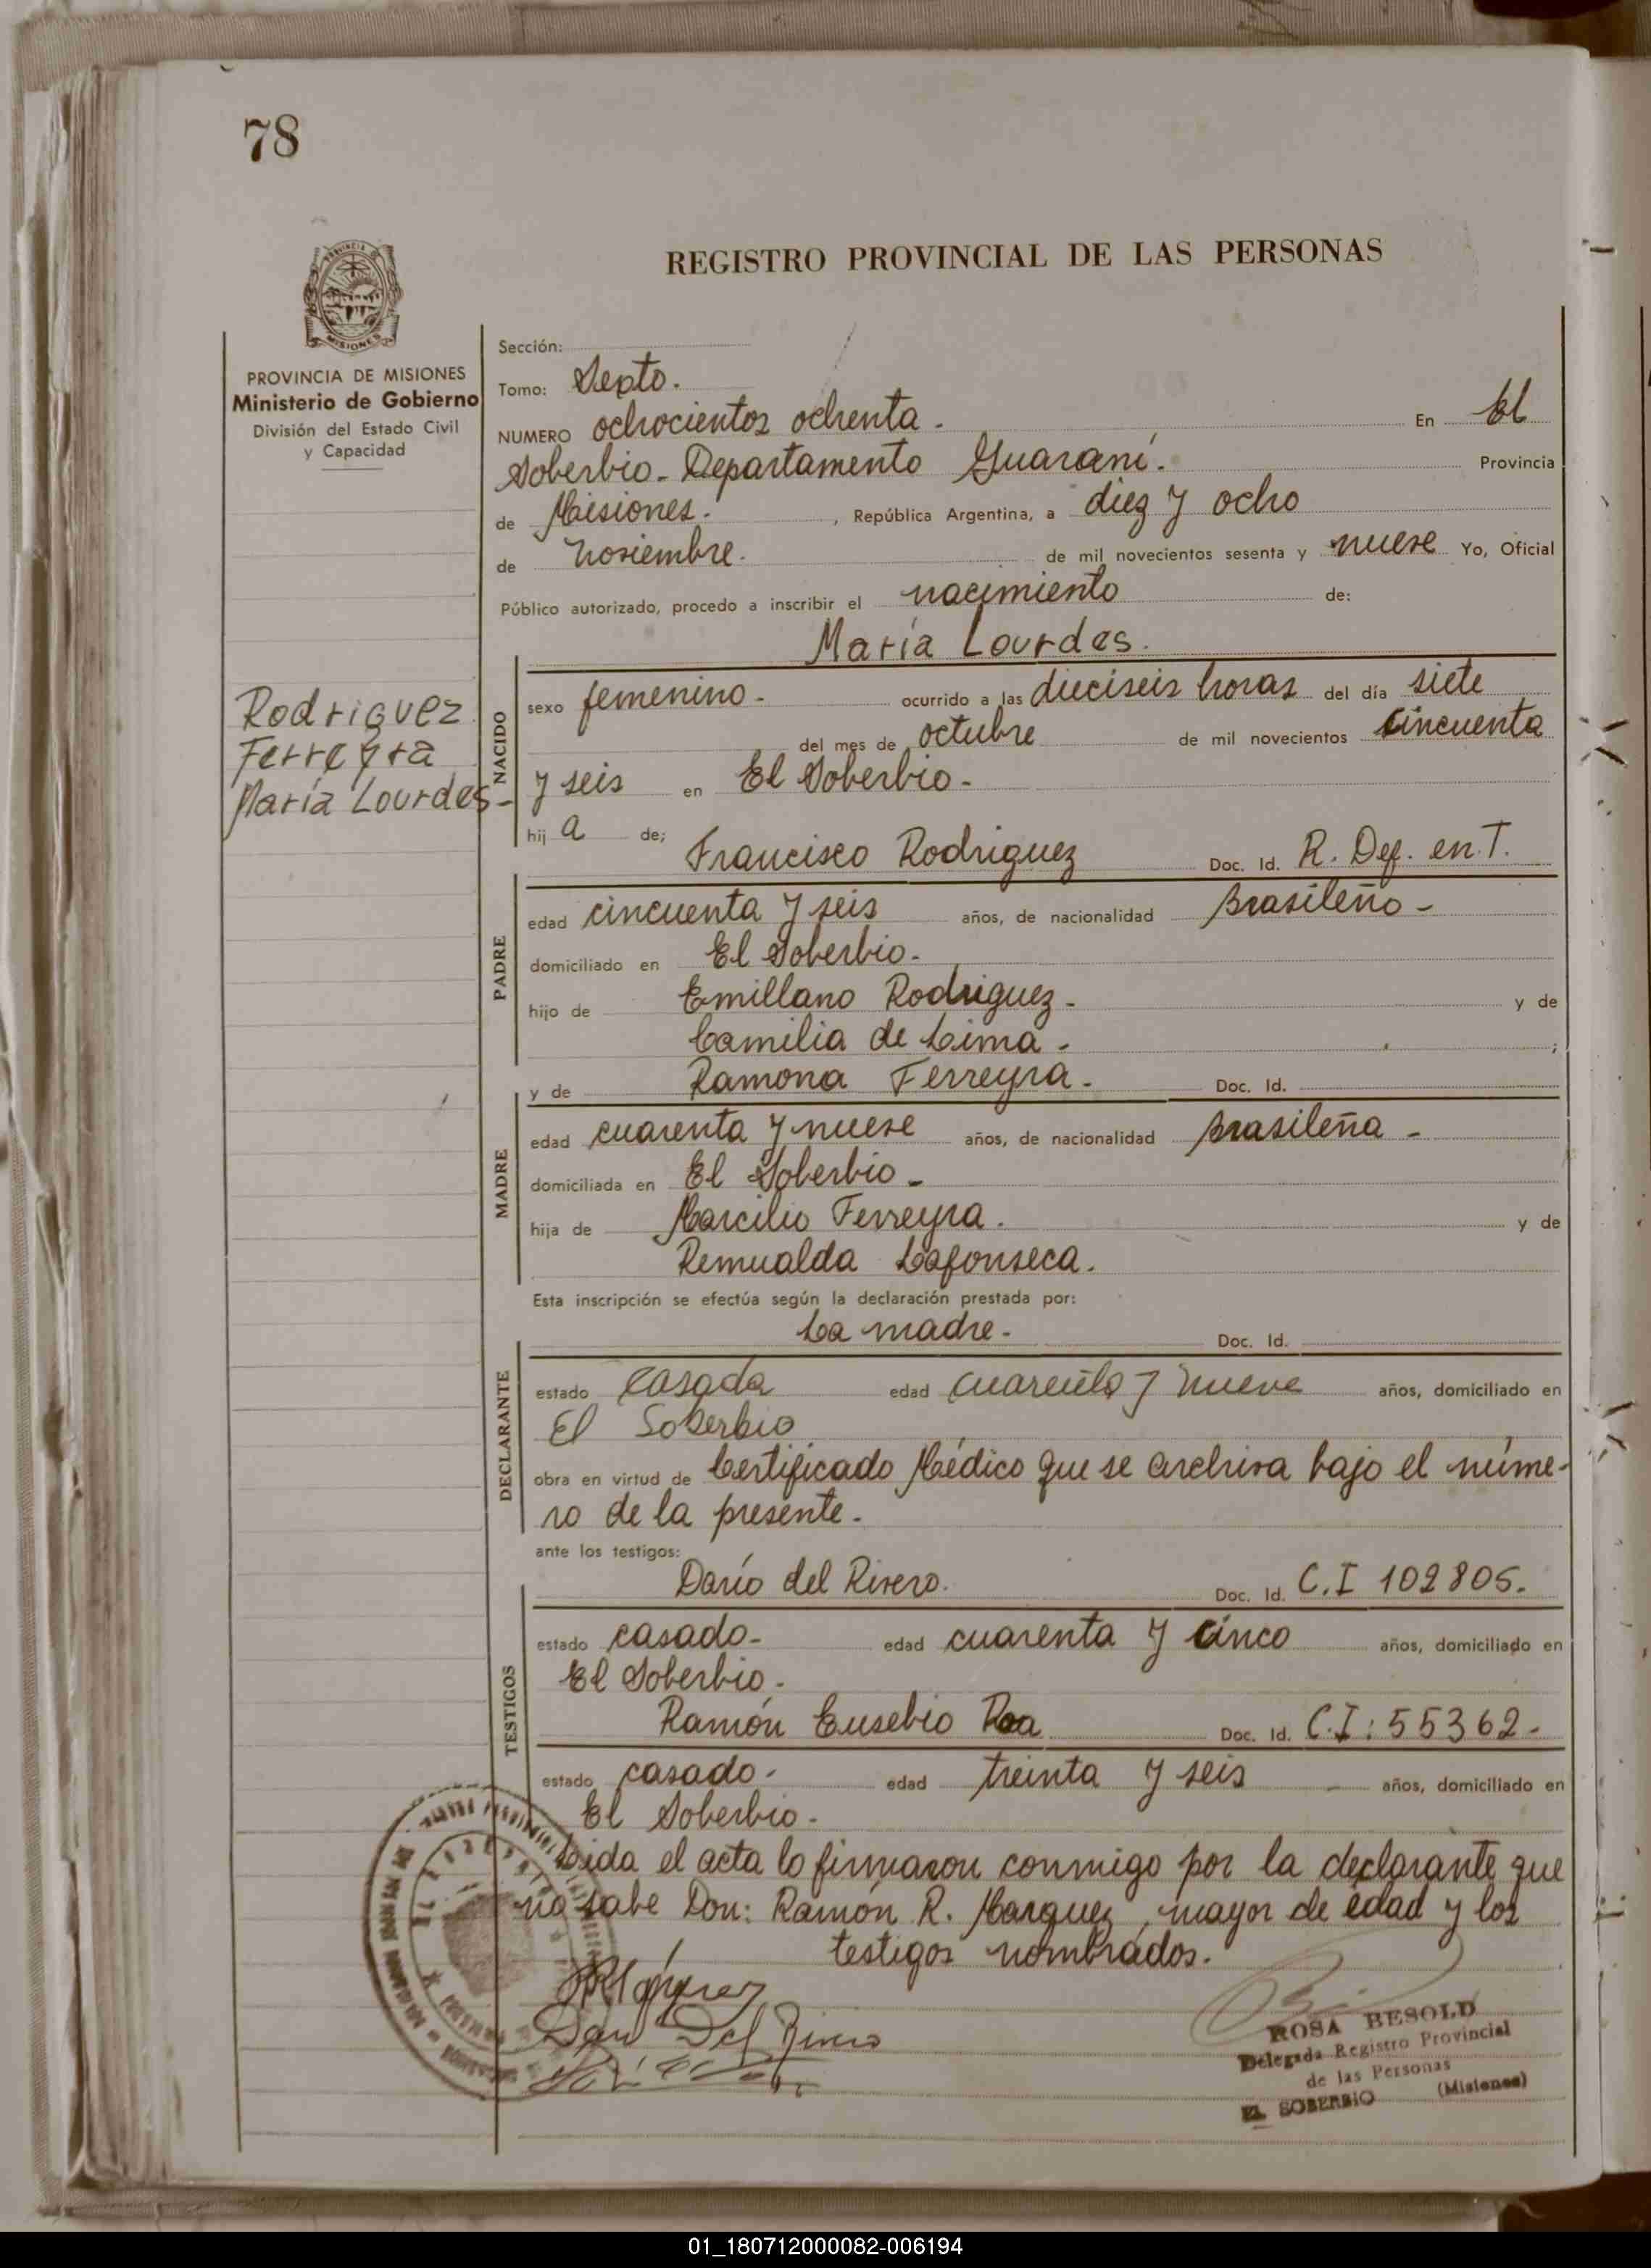 78
REGISTRO PROVINCIAL DE LAS PERSONAS
PROVINCIA
MISIONES
PROVINCIA DE MISIONES
Ministerio de Gobierno
División del Estado Civil
y Capacidad
Rodriguez
Ferreyra
María Lourdes-
Sección:
Tomo: Sexto.
NUMERO ochocientos ochenta - En El
Soberbio- Departamento Guaraní. Provincia
de Misiones. , República Argentina, a diez y ocho
de noviembre. de mil novecientos sesenta y nueve Yo, Oficial
Público autorizado, procedo a inscribir el nacimiento de:
María Lourdes.
NACIDO
sexo femenino- ocurrido a las dieciseis horas del día siete
del mes de octubre de mil novecientos cincuenta
y seis en El Soberbio-
hij a de; Francisco Rodriguez Doc. Id. R. Def. en T.
PADRE
edad cincuenta y seis años, de nacionalidad Brasileño-
domiciliado en El Soberbio-
hijo de Emillano Rodriguez- y de
Camilia de Lima- ;
y de Ramona Ferreyra- Doc. Id.
MADRE
edad cuarenta y nueve años, de nacionalidad Brasileña-
domiciliada en El Soberbio-
hija de Marcilio Ferreyra. y de
Remualda Lafonseca.
Esta inscripción se efectúa según la declaración prestada por:
La madre- Doc. Id.
DECLARANTE
estado casada edad cuarenta y nueve años, domiciliado en
El Soberbio
obra en virtud de Certificado Médico que se archiva bajo el núme-
ro de la presente-
ante los testigos:
Darío del Rivero. Doc. Id. C.I 102805.
TESTIGOS
estado casado- edad cuarenta y cinco años, domiciliado en
El Soberbio-
Ramón Eusebio Roa Doc. Id. C.I: 55362-
estado casado- edad treinta y seis años, domiciliado en
El Soberbio-
Leida el acta lo firmaron conmigo por la declarante que
no sabe Don: Ramón R. Marquez, mayor de edad y los
testigos nombrados.
ROSA BESOLD
Delegada Registro Provincial
de las Personas
EL SOBERBIO (Misiones)
01_180712000082-006194